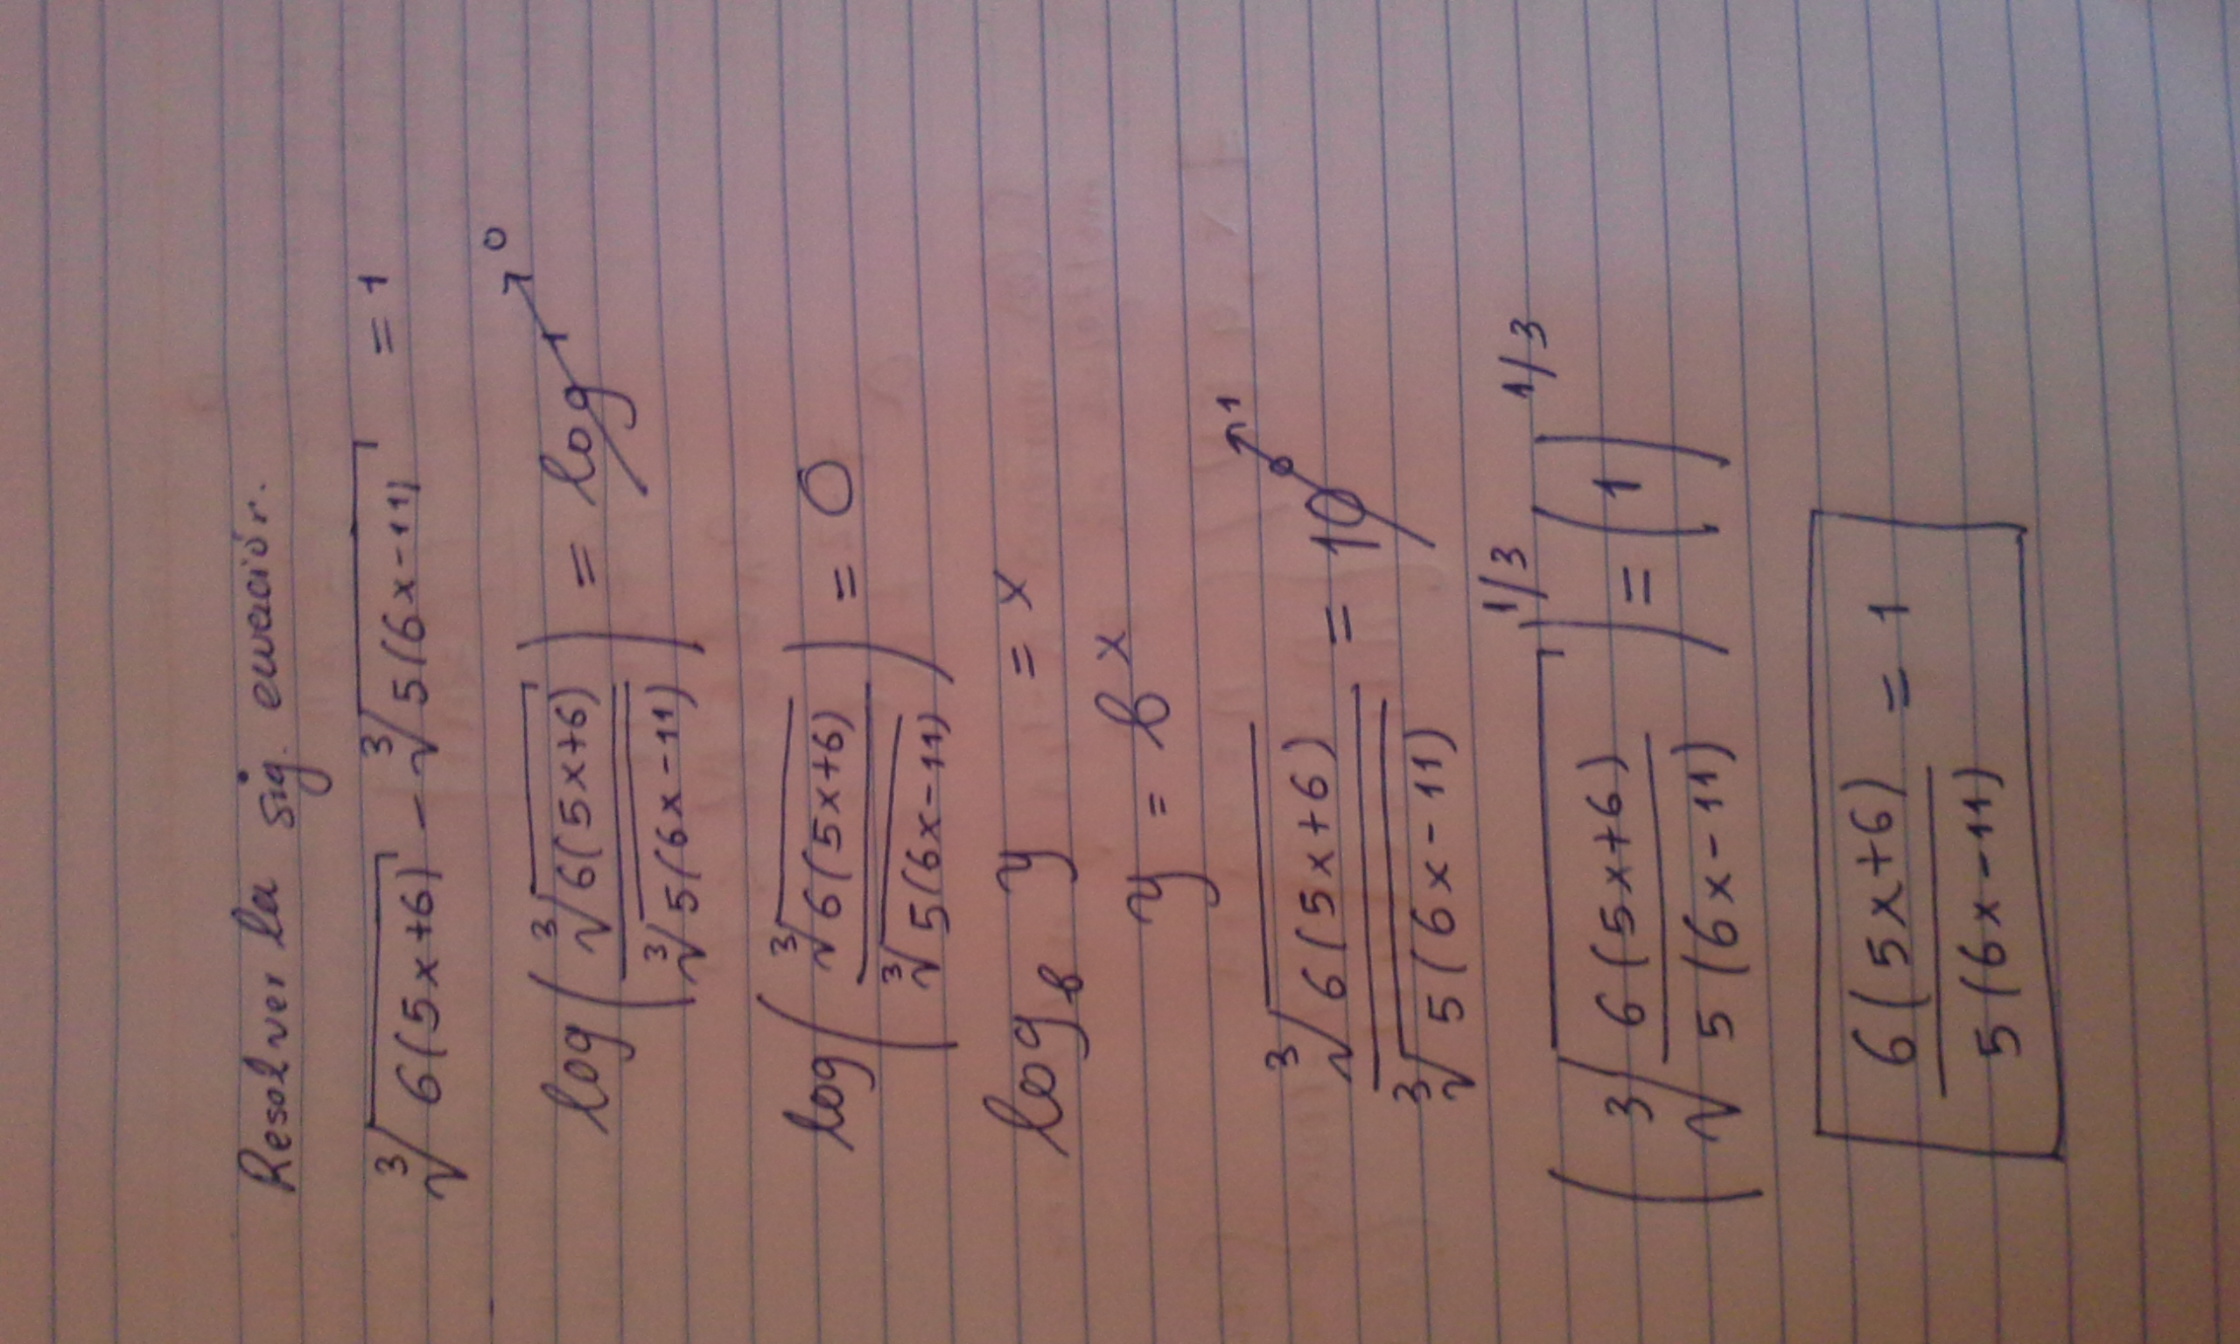 Resolver la sig. ecuación.
∛6(5x+6) - ∛5(6x-11) = 1
log(∛6(5x+6) / ∛5(6x-11)) = log 1 → 0
log(∛6(5x+6) / ∛5(6x-11)) = 0
log_b y = x
y = b^x
∛6(5x+6) / ∛5(6x-11) = 10^0 → 1
(∛(6(5x+6) / 5(6x-11)))^1/3 = (1)^1/3
6(5x+6) / 5(6x-11) = 1